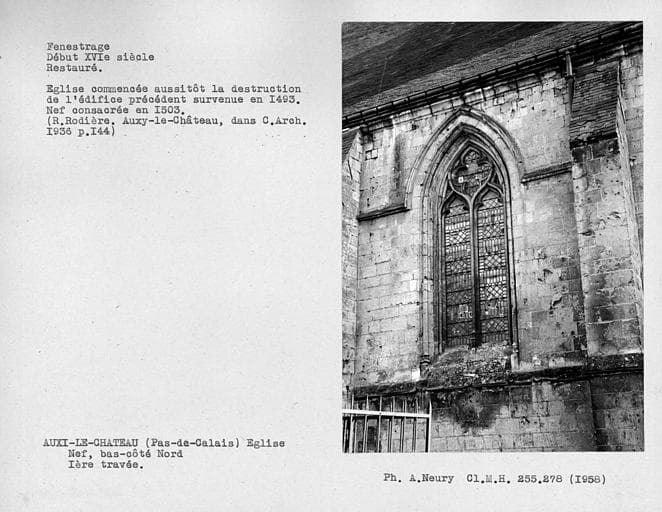 Fenestrage
Début XVIe siècle
Restauré.
Eglise commencée aussitôt la destruction
de l'édifice précédent survenue en I493.
Nef consacrée en I503.
(R.Rodière. Auxy-le-Château, dans C.Arch.
I936 p.I44)
AUXI-LE-CHATEAU (Pas-de-Calais) Eglise
Nef, bas-côté Nord
Ière travée.
Ph. A.Neury Cl.M.H. 255.278 (I958)